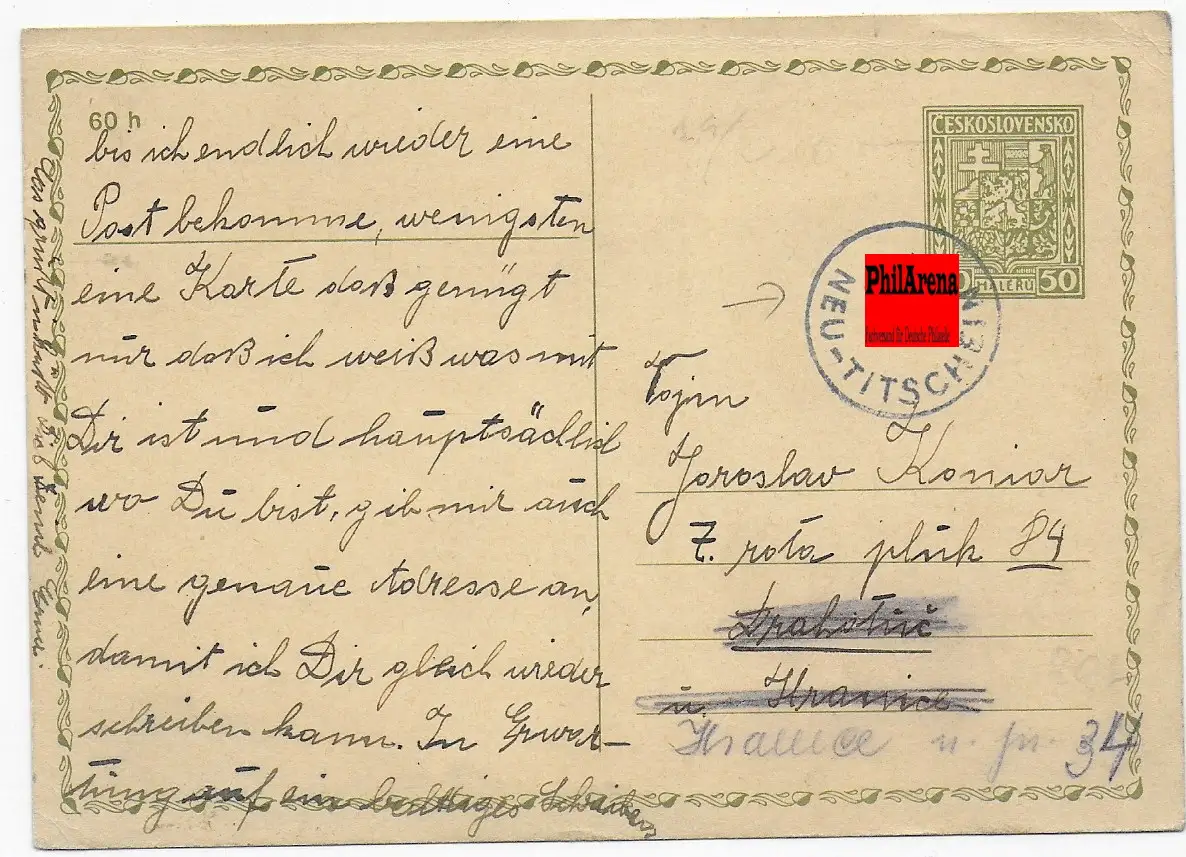 60 h
bis ich endlich wieder eine
Post bekomme, wenigsten
eine Karte daß genügt
nur daß ich weiß was mit
Dir ist und hauptsächlich
wo Du bist, gib mir auch
eine genaue Adresse an,
damit ich Dir gleich wieder
schreiben kann. In Erwar-
tung auf ein baldiges Schreiben
ČESKOSLOVENSKO
50 HALÉŘŮ 50
NEU-TITSCHEIN
PhilArena
für Deutsche Philatelie
Vojin
Jaroslav Koniar
7. rota pluk 84
Drahotuč
u. Hranice
Hranice n. m. 34